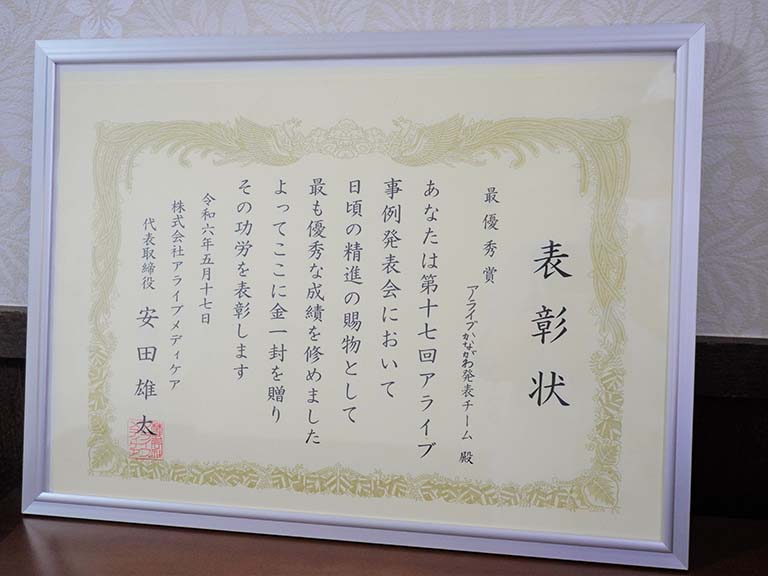 表彰状
最優秀賞
アライブかながわ発表チーム 殿
あなたは第十七回アライブ
事例発表会において
日頃の精進の賜物として
最も優秀な成績を修めました
よってここに金一封を贈り
その功労を表彰します
令和六年五月十七日
株式会社アライブメディケア
代表取締役 安田雄太